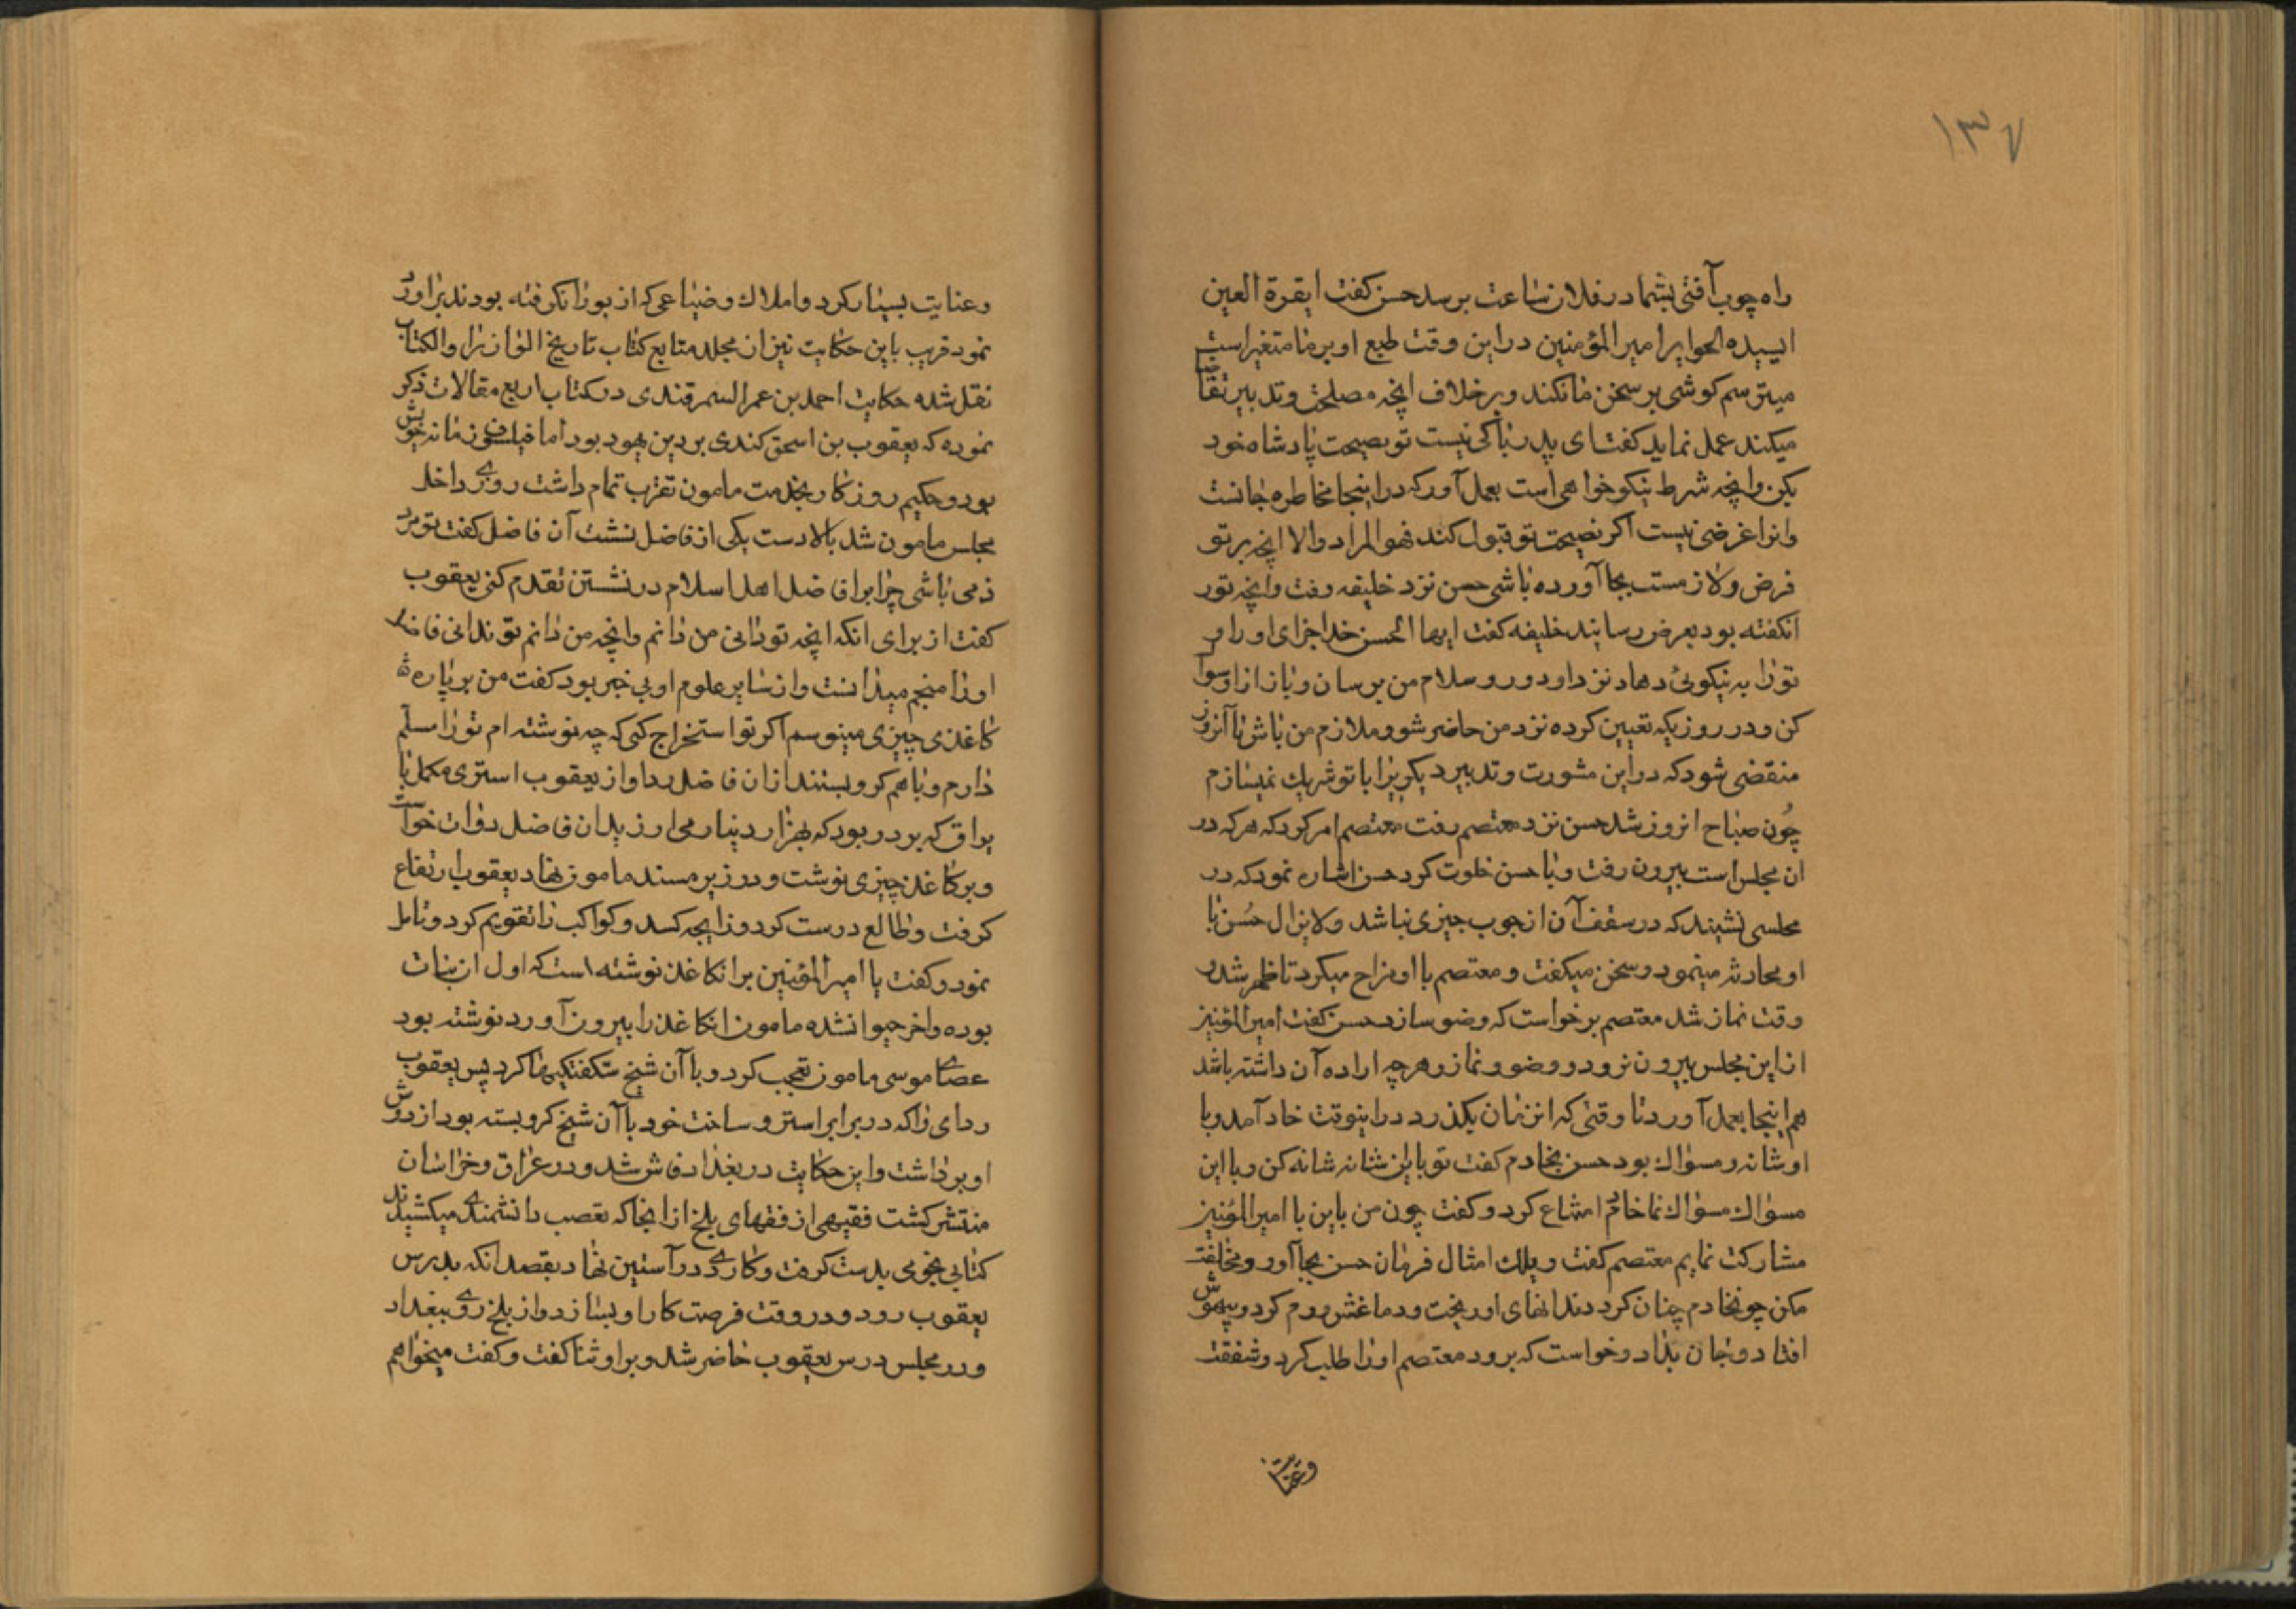 ۱۳۷
راه چوب آفتی بشما در فلان ساعت برسد حسن کفت ایقرة العین
ایسیده الحوایر امیر المؤمنین در این وقت طبع او بر ما متغیر است
میترسم کوشی بر سخن ما نکند و بر خلاف انچه مصلحت و تدبیر تقاضا
میکند عمل نماید کفت ای پدر باکی نیست تو نصیحت پادشاه خود
بکن وانچه شرط نیکو خواهی است بعمل آور که در اینجا مخاطره جانست
وانرا غرضی نیست اکر نصیحت تو قبول کند فهو المراد والا انچه بر تو
فرض ولازمست بجا آورده باشی حسن نزد خلیفه رفت وانچه تور
انکفته بود بعرض رسانید خلیفه کفت ایها الحسن خدا جزای او را و
تورا به نیکوئی دهاد نزد او رو و سلام من برسان و باز از او سوال
کن و در روزیکه تعیین کرده نزد من حاضر شو و ملازم من باش تا آنروز
منقضی شود که در این مشورت و تدبیر دیکریرا با تو شریك نمیسازم
چون صباح انروز شد حسن نزد معتصم رفت معتصم امر کرد که هر که در
ان مجلس است بیرون رفت و با حسن خلوت کرد حسن اشاره نمود که در
مجلسی نشیند که در سقف آن از چوب چیزی نباشد ولا یزال حسن با
او محادثه مینمود و سخن میکفت و معتصم با او مزاح میکرد تا ظهر شد و
وقت نماز شد معتصم برخواست که وضو سازد حسن کفت امیر المؤمنین
از این مجلس بیرون نرود و وضو و نماز و هر چه اراده آن داشته باشد
هم اینجا بعمل آورد تا وقتی که انزمان بکذرد در اینوقت خادم آمد و با
او شانه و مسواك بود حسن بخادم کفت تو باین شانه شانه کن و با این
مسواك مسواك نما خادم امتناع کرد و کفت چون من باین با امیر المؤمنین
مشارکت نمایم معتصم کفت ویلك امثال فرمان حسن بجا آور و مخالفت
مکن چونخادم چنان کرد دندانهای او ریخت و دماغش ورم کرد و بیهوش
افتاد و جان بداد و خواست که برود معتصم اورا طلب کرد و شفقت
وعنایت
وعنایت بسیار کرد و املاك و ضیاعی که از بوران کرفته بودند بر او رد
نمود قریب باین حکایت نیز از مجلد متابع کتاب تاریخ الوازرا والکتاب
نقل شده حکایت احمد بن عمر السمرقندی در کتاب اربع مقالات ذکر
نموده که یعقوب بن اسحق کندی بر دین یهود بود اما فیلسوف زمانه خویش
بود و حکیم روزکار بخدمت مامون تقرب تمام داشت روزی داخل
مجلس مامون شد بالا دست یکی از فاضل نشست آن فاضل کفت تو مرد
ذمی باشی چرا بر افاضل اهل اسلام در نشستن تقدم کنی یعقوب
کفت از برای انکه انچه تو دانی من دانم وانچه من دانم تو ندانی فاضل
اورا منجم میدانست و از سایر علوم او بی خبر بود کفت من بر پاره
کاغذی چیزی مینویسم اکر تو استخراج کنی که چه نوشته ام تورا مسلم
دارم و با هم کرو بستند از ان فاضل ردا و از یعقوب استری مکمل با
یراق که بر در بود که بهزار دینار می ارزید ان فاضل دوات خواست
و بر کاغذ چیزی نوشت و در زیر مسند مامون نهاد یعقوب ارتفاع
کرفت و طالع درست کرد و زایجه کسد و کواکب را تقویم کرد و تامل
نمود و کفت یا امیر المؤمنین بر انکاغذ نوشته است که اول ان نبات
بوده واخر حیوان شده مامون انکاغذ را بیرون آورد نوشته بود
عصای موسی مامون تعجب کرد و با آن شیخ شکفتکیها کرد پس یعقوب
ردای را که در برابر استر و ساخت خود با آن شیخ کرو بسته بود از دوش
او برداشت و این حکایت در بغداد فاش شد و در عراق و خراسان
منتشر کشت فقیهی از فقهای بلخ از انجا که تعصب دانشمندی میکشیدند
کتابی نجومی بدست کرفت و کاردی در آستین نهاد بقصد انکه بدرس
یعقوب رود و در وقت فرصت کار او بسازد و از بلخ روی ببغداد
و در مجلس درس یعقوب حاضر شد و بر او ثنا کفت و کفت میخواهم